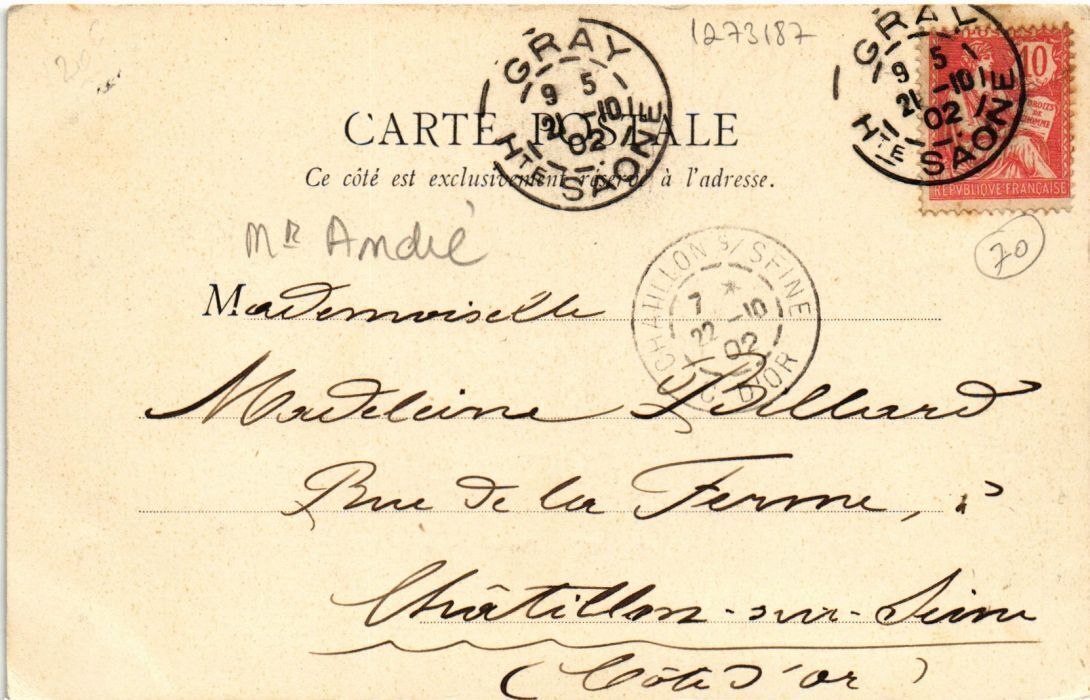 1273187
GRAY
9 5
21 -10
02
Hte SAONE
GRAY
9 5
21 -10
02
Hte SAONE
10
DROITS
DE
L'HOMME
REPVBLIQVE FRANÇAISE
CARTE POSTALE
Ce côté est exclusivement réservé à l'adresse.
70
Mr André
CHATILLON S/ SEINE
7
22 -10
02
C. D'OR
Mademoiselle
Madeleine Billiard
Rue de la Ferme,
Châtillon-sur-Seine
(Côte d'or)